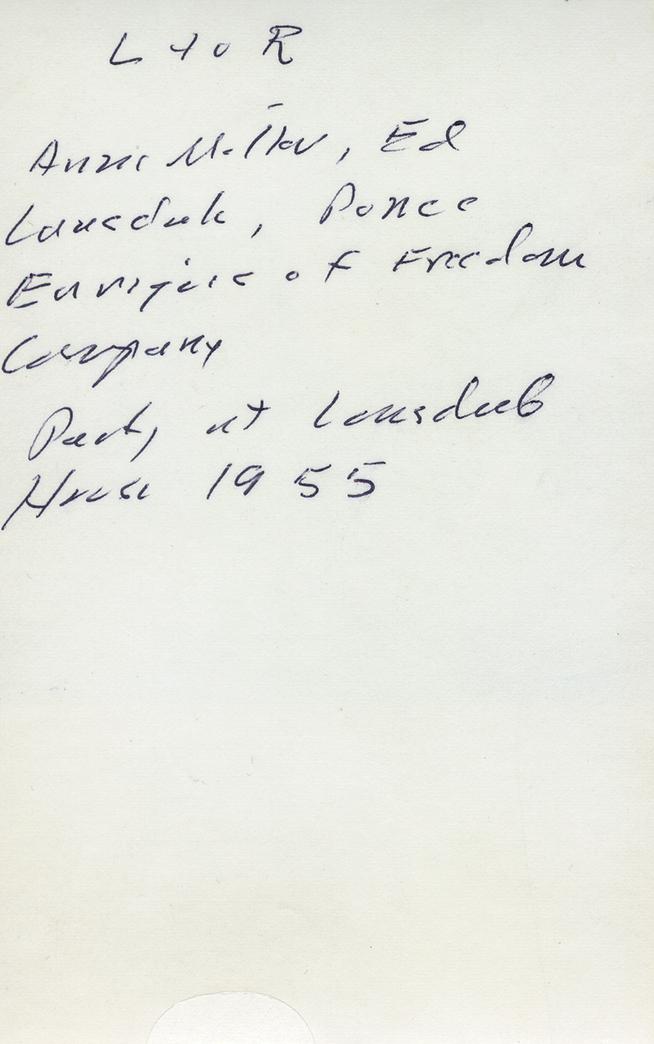 L to R
Anne Miller, Ed
Lansdale, Ponce
Enrique of Freedom
Company
Party at Lansdale
House 1955